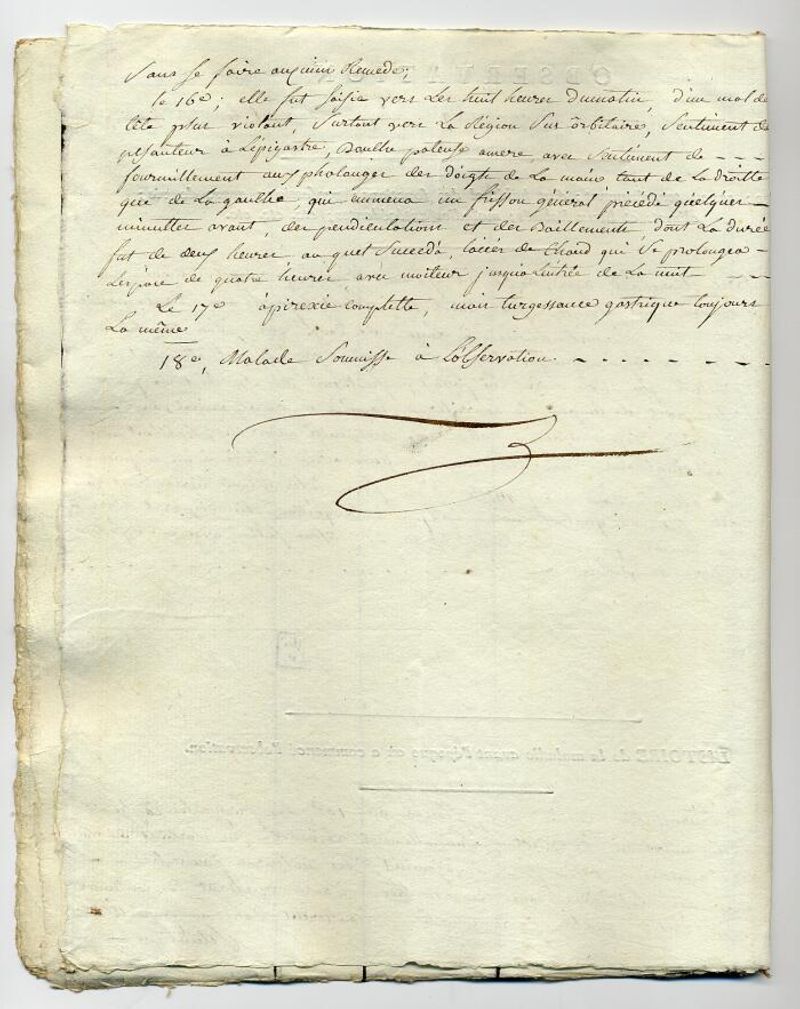 Sans se faire auqu'un Remede;
le 16e; elle fut saisie vers les huit heures du matin, d'un mal de
tête plus violent, surtout vers la Région sus orbitaire, sentiment de
pesanteur à L'épigastre, Bouche pateuse amere, avec sentiment de - - -
fourmillement aux phalanges des doigts de la main tant de la droitte
que de la gauche, qui emmena un frisson général précédé quelques -
minuttes avant, des pendiculations et des Baillements dont la durée
fut de deux heures, auquel succeda, l'accés de chaud qui se prolongea -
L'espace de quatre heures avec moiteur jusqu'a L'entrée de la nuit - - -
Le 17e apirexie complette, mais turgessance gastrique toujours
La même
18e, Malade Soumisse à L'observation. - - - - - - -
OBSERVATION
HISTOIRE de la maladie avant l'époque où a commencé l'observation.